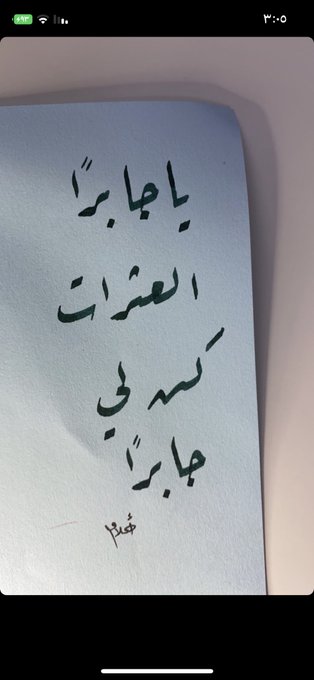 ٣:٠٥
٩٣
يا جابرًا
العثرات
كن لي
جابرًا